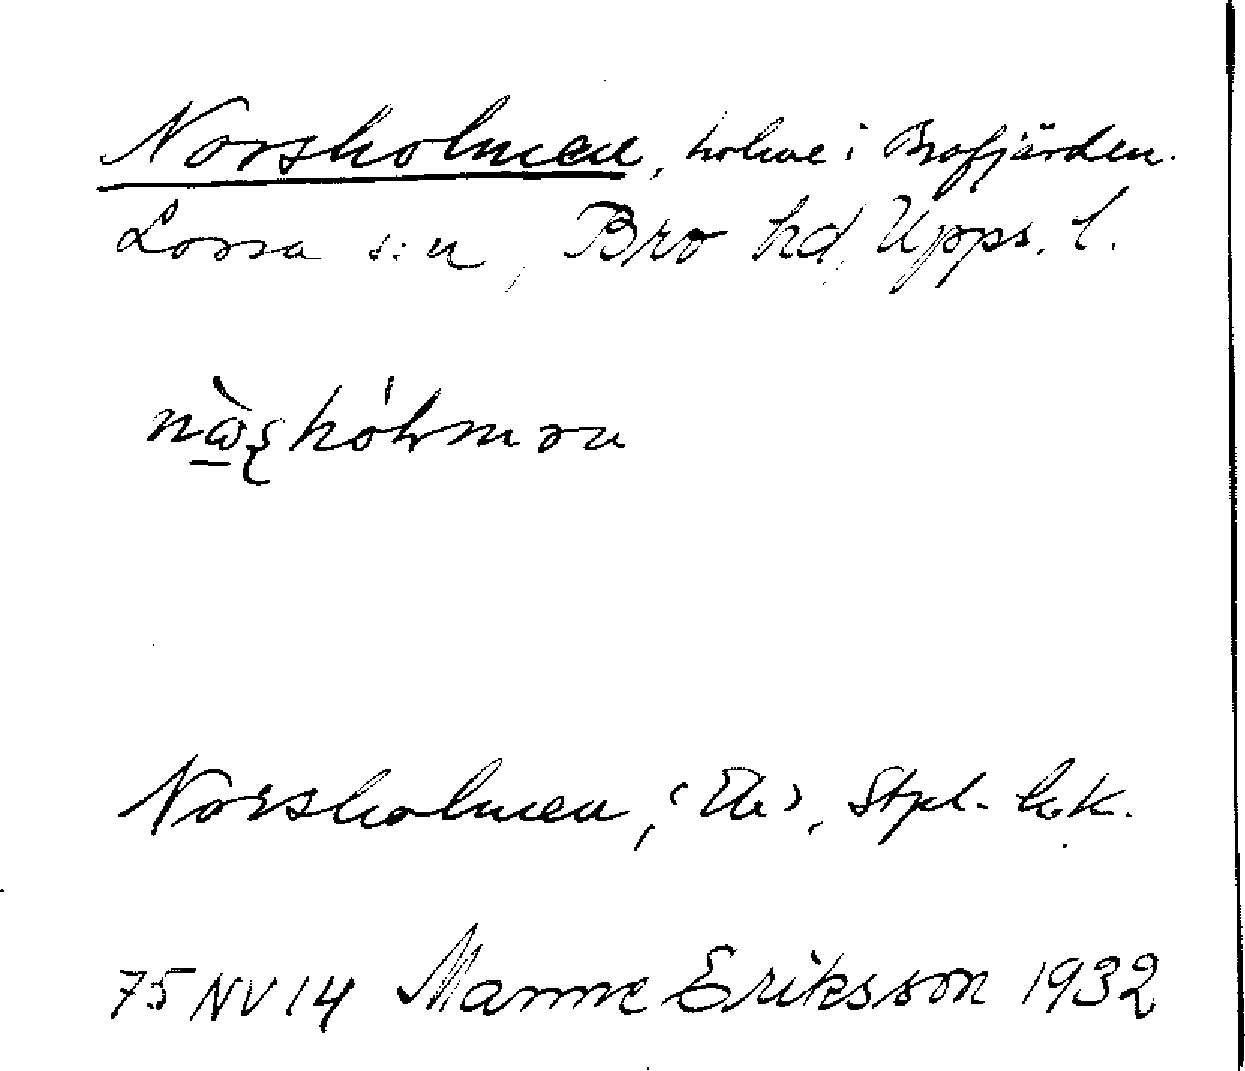 Norsholmen, holme i Brofjärden.
Lossa s:n, Bro hd, Upps. l.
Norsholmen, Stpl.
75 NV 14 Manne Eriksson 1932